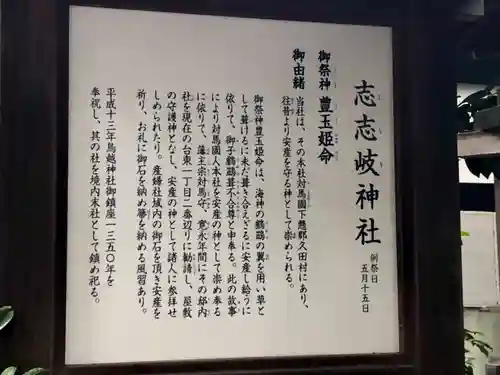 志志岐神社
例祭日
五月十五日
御祭神 豊玉姫命
御由緒
当社は、その本社対馬国下縣郡久田村にあり、
往昔より安産を守る神として崇められる。
御祭神豊玉姫命は、海神の鶴鵡の翼を用い草と
して葺けるに未だ葺き合えざるに安産し給うに
依りて、御子鶴鵡葺不合尊と申奉る。此の故事
により対馬国人本社を安産の神として崇め奉る
に依りて、藩主宗対馬守、寛永年間にその邸内
社を現在の台東一丁目二番辺りに勧請し、屋敷
の守護神となし、安産の神として諸人に参拝せ
しめられたり。産婦社域内の御石を頂き安産を
祈り、お礼に御石を納め礱を納める風習あり。
平成十二年鳥越神社御鎮座一三五〇年を
奉祝し、其の社を境内末社として鎮め祀る。